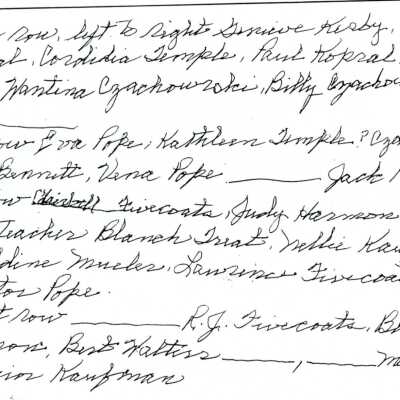 row, left to right Genieve Kirby,
al, Cordidia Temple, Paul Kopral
Wantina Czachowrski, Billy Czachow
ow Eva Pope, Kathleen Temple, ? Cza
Bennett, Vena Pope ______ Jack
ow Fivecoats, Judy Harmon
Teacher Blanch Treat, Nellie Kau
dine Mueler, Lawrence Fivecoa
tor Pope.
t row ______ R.J. Fivecoats, B
son, Bert Walters ______, ______ M
ior Kaufman